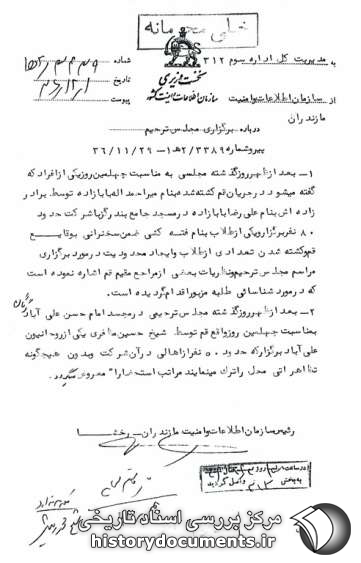 خیلی محرمانه
به مدیریت کل اداره سوم ۳۱۲
شماره
نخست وزیری
تاریخ
سازمان اطلاعات و امنیت کشور
پیوست
از سازمان اطلاعات و امنیت
مازندران
درباره برگزاری مجلس ترحیم
پیرو شماره ۳۳۸۹/۲ه۱ - ۳۶/۱۱/۲۹
۱- بعد از ظهر روز گذشته مجلسی به مناسبت چهلمین روز یکی از افراد که
گفته میشود در جریان قم کشته شده بنام میر احمد اله بابازاده توسط برادر
زاده اش بنام علی رضا بابازاده در مسجد جامع بندر گز با شرکت حدود
۸۰ نفر برگزار و یکی از طلاب بنام فتنه کشی ضمن سخنرانی بوقایع
قم و کشته شدن تعدادی از طلاب و ایجاد محدودیت در مورد برگزاری
مراسم مجلس ترحیم و نظریات بعضی از مراجع مقیم قم اشاره نموده است
که در مورد شناسائی طلبه مزبور اقدام گردیده است.
۲- بعد از ظهر روز گذشته مجلس ترحیمی در مسجد امام حسن علی آباد
بمناسبت چهلمین روز وقایع قم توسط شیخ حسین طاهری یکی از روحانیون
علی آباد برگزار که حدود ۵۰ نفر از اهالی در آن شرکت و بدون هیچگونه
تظاهراتی محل را ترک مینمایند مراتب استحضارا" معروض میگردد.
رئیس سازمان اطلاعات و امنیت مازندران - رخشا
مرکز بررسی اسناد تاریخی
historydocuments.ir